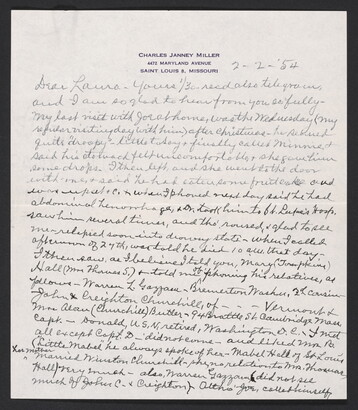 CHARLES JANNEY MILLER
4472 MARYLAND AVENUE
SAINT LOUIS 8, MISSOURI
2-2-'54
Dear Laura - Yours rec'd also telegram,
and I am so glad to hear from you so fully -
My last visit with Joe at home, was the Wednesday (my
regular visiting day with him) after Christmas - he seemed
quite "dropy" - little to say & finally called Minnie &
said his stomach felt uncomfortable & she gave him
some drops. I then left and she went to the door
with me, & said he had eaten some
& was upset - & when I phoned next day said he had
abdominal hemorrhage, & Dr. took him to St. Luke's Hosp.
saw him several times, and tho roused, & glad to see
me relapsed soon into drowsy state - when I called
afternoon of 27th, was told he died 10 a.m. that day -
I then saw, as I believe I told you, Mary (Tompkins)
Hall (Mrs Thomas S.) & told me phoning his relatives, as
follows - Warren L. Gazzam - Bremerton Washn., 2d cousin -
John & Creighton Churchill, of - - Vermont &
Mrs. Alan (Churchill) Butler - Brattle St Cambridge Mass.
Capt - Donald, U.S.N, retired, Washington D.C. & I met
all except Capt. D - did not come - and liked Mrs. B.
(Little Mabel he always spoke of her - Mabel Hall of St Louis
her mother
married Winston Churchill - no relation to Mrs. Thomas
Hall) very much - also, Warren Gazzam did not see
much of John C. & Creighton) Altho' Joe, called himself